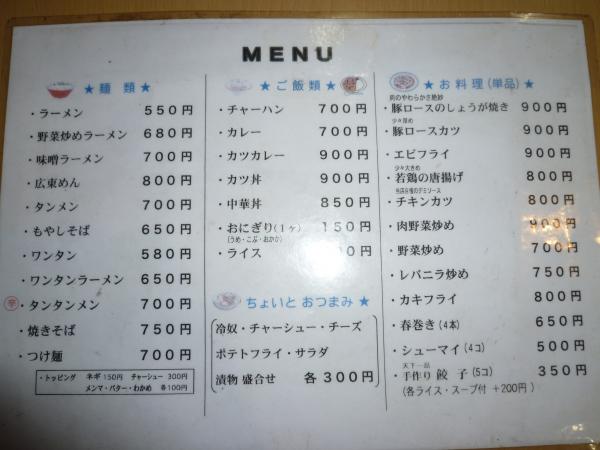 MENU
★ 麺 類 ★
・ラーメン 550円
・野菜炒めラーメン 680円
・味噌ラーメン 700円
・広東めん 800円
・タンメン 700円
・もやしそば 650円
・ワンタン 580円
・ワンタンラーメン 650円
辛・タンタンメン 700円
・焼きそば 750円
・つけ麺 700円
・トッピング ネギ 150円 チャーシュー 300円
メンマ・バター・わかめ 各100円
★ ご 飯 類 ★
・チャーハン 700円
・カレー 700円
・カツカレー 900円
・カツ丼 900円
・中華丼 850円
・おにぎり(1ヶ) 150円
(うめ・こぶ・おかか)
・ライス 0円
★ ちょいと おつまみ ★
冷奴・チャーシュー・チーズ
ポテトフライ・サラダ
漬物 盛合せ 各300円
★ お 料 理 (単品) ★
肉のやわらかさ絶妙
・豚ロースのしょうが焼き 900円
少々厚め
・豚ロースカツ 900円
・エビフライ 900円
少々大きめ
・若鶏の唐揚げ 800円
当店自慢のデミソース
・チキンカツ 800円
・肉野菜炒め 900円
・野菜炒め 700円
・レバニラ炒め 750円
・カキフライ 800円
・春巻き(4本) 650円
・シューマイ(4コ) 500円
天下一品
・手作り 餃 子(5コ) 350円
(各ライス・スープ付 +200円)